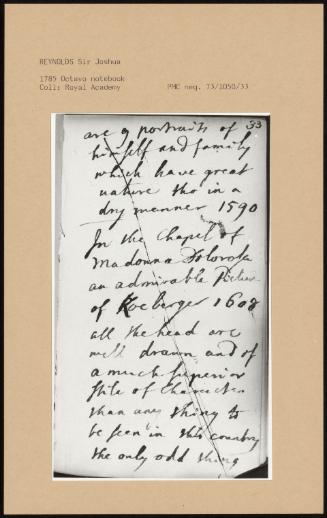 REYNOLDS Sir Joshua
1785 Octavo notebook
Coll: Royal Academy PMC neg. 73/1050/33
33
are 9 portraits of
himself and family
which have great
nature tho in a
dry manner 1590
In the Chapel of
Madonna Dolorosa
an admirable Picture
of Roeberger 1608
all the head are
well drawn and of
a much superior
stile of Character
than any thing to
be seen in this country
the only odd thing